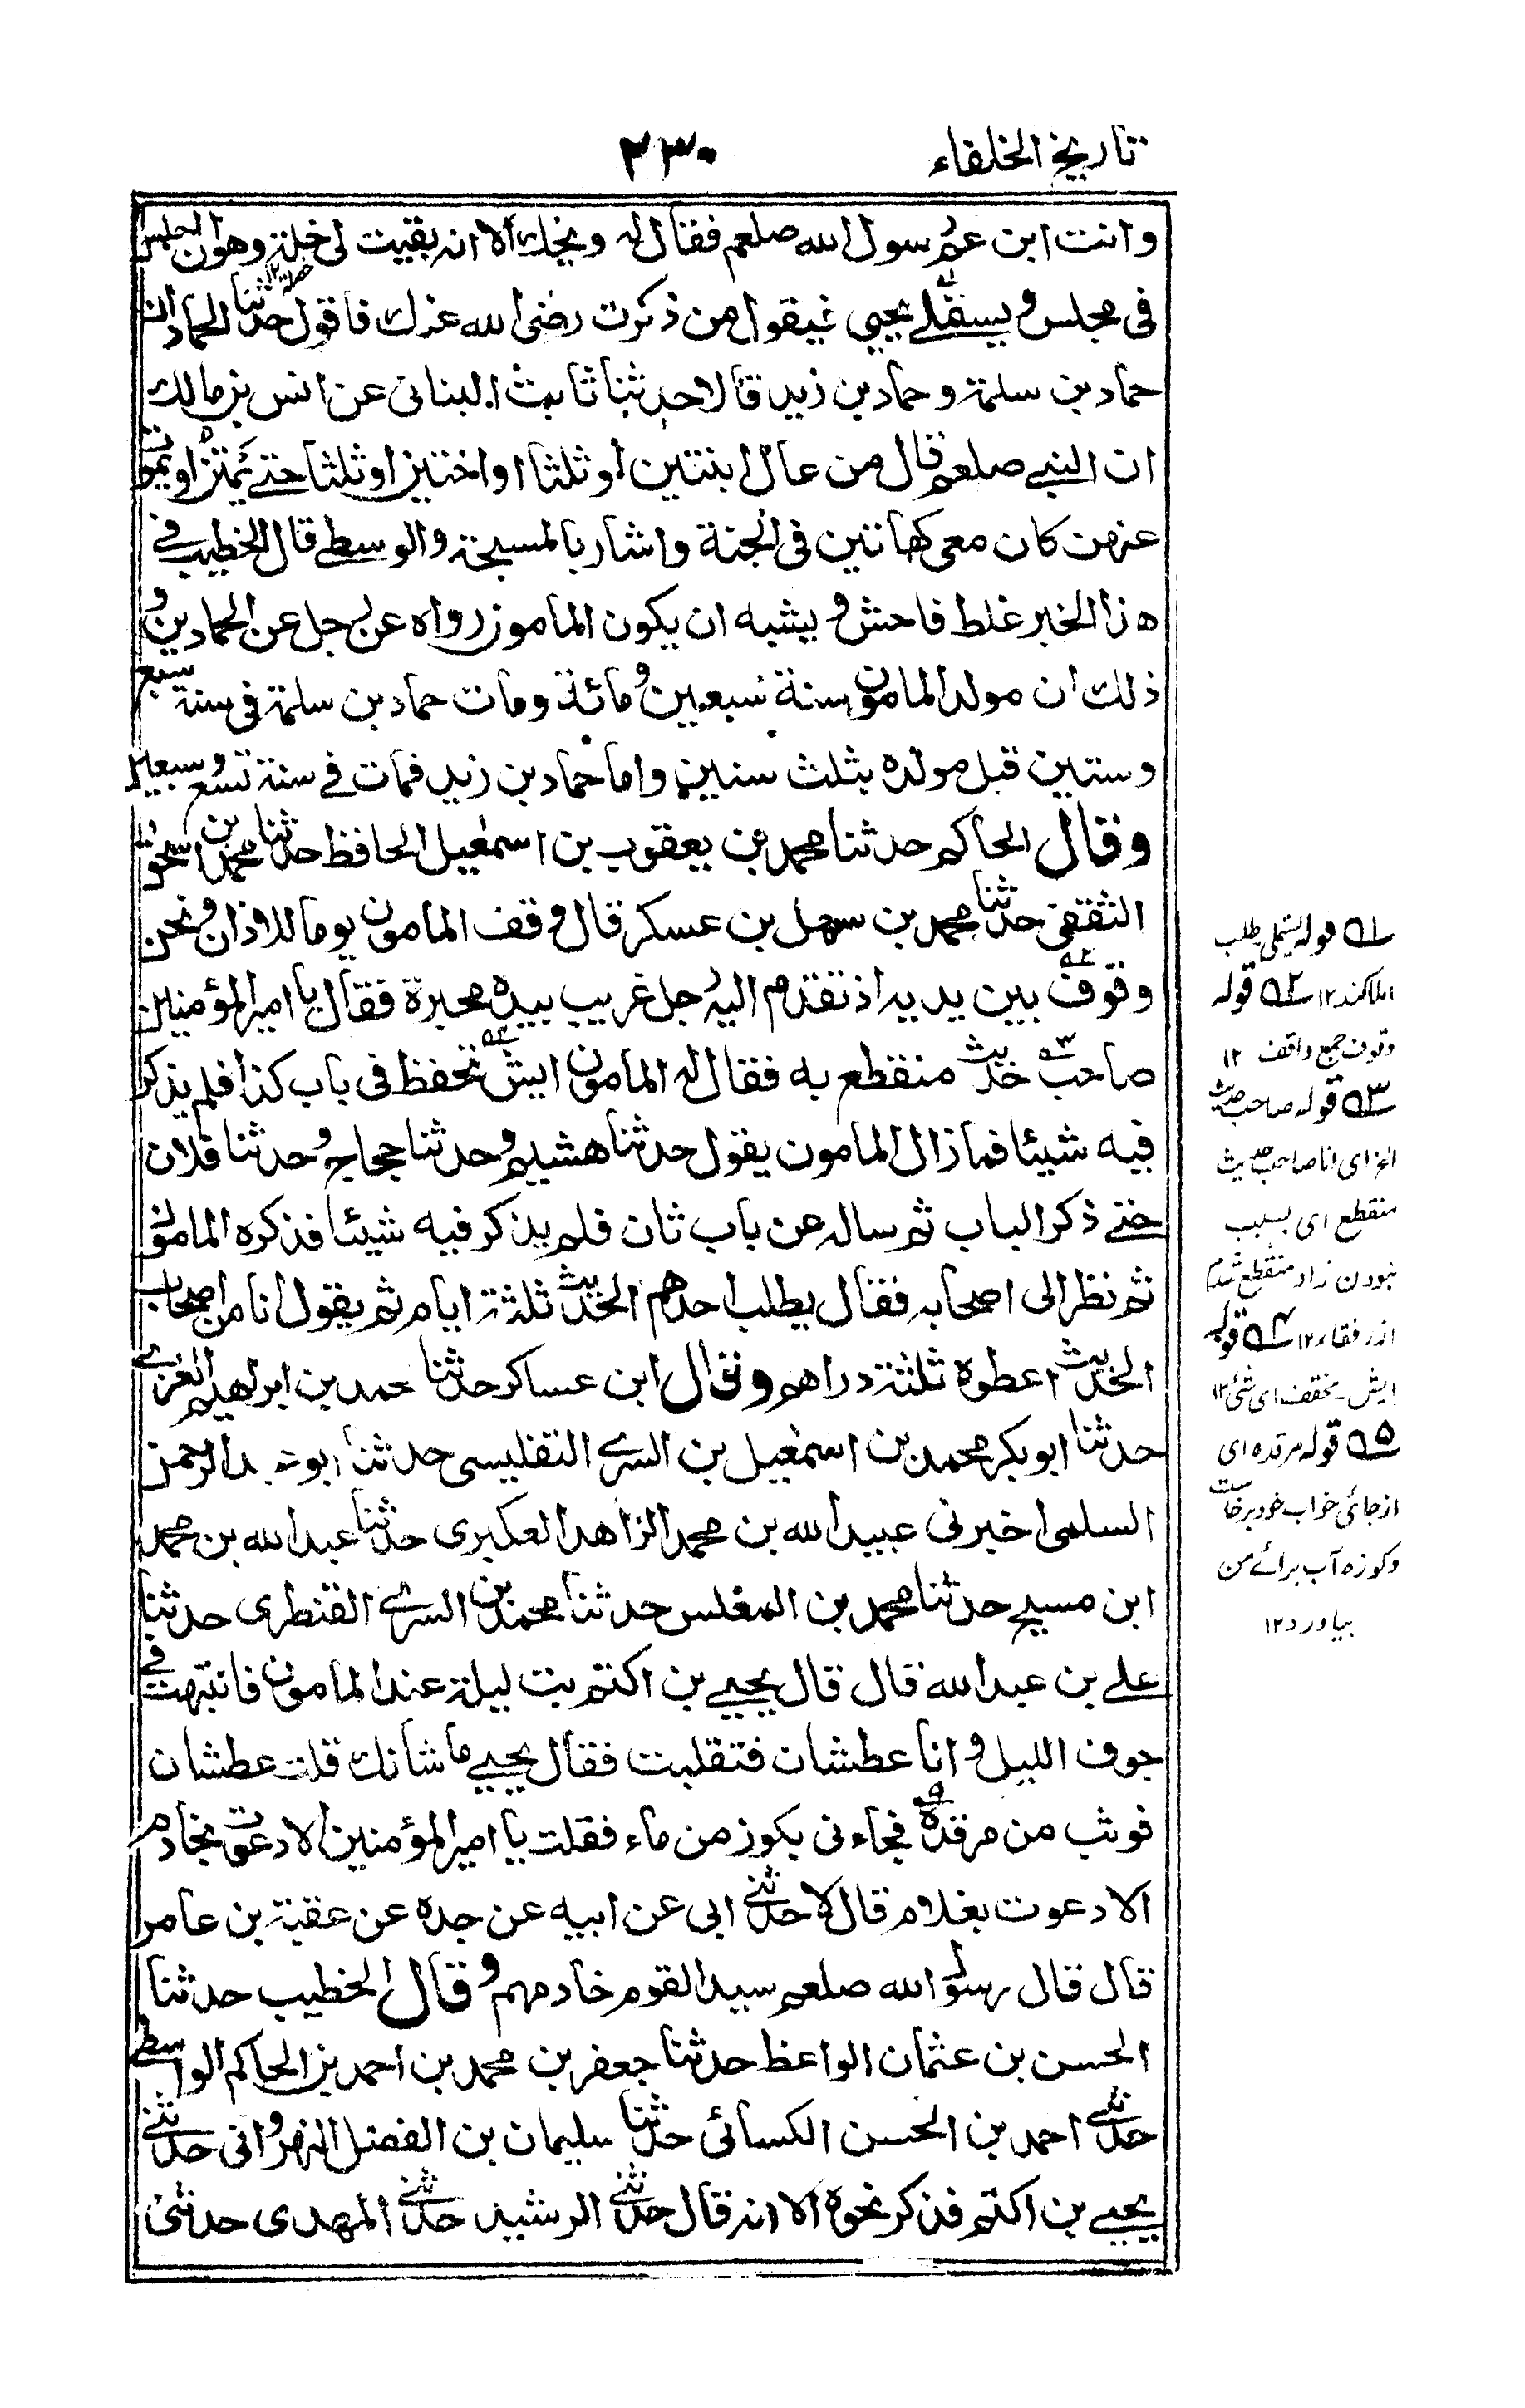 تاريخ الخلفاء
٢٣٠
وانت ابن عم رسول الله صلعم فقال له ويحك الا انه بقيت لى خلة وهو ان اجلس
خصلة ١٢
فى مجلس ويستملے يحيى فيقول من ذكرت رضى الله عنك فاقول حدثنا الحمادان
حماد بن سلمة وحماد بن زيد قالا حدثنا ثابت البنانى عن انس بن مالك
ان النبے صلعم قال من عال ابنتين او ثلثا او اختين او ثلثا حتے يمتن او يموت
عنهن كان معى كهاتين فى الجنة واشار بالمسبحة والوسطے قال الخطيب فے
هذا الخبر غلط فاحش ويشبه ان يكون المامون رواه عن رجل عن الحمادين و
ذلك ان مولد المامون سنة سبعين ومائة ومات حماد بن سلمة فى سنة سبع
وستين قبل مولده بثلث سنين واما حماد بن زيد فمات فے سنة تسع وسبعين
وقال الحاكم حدثنا محمد بن يعقوب بن اسمعيل الحافظ حدثنا محمد بن اسحق
الثقفى حدثنا محمد بن سهل بن عسكر قال وقف المامون يوما للاذان ونحن
وقوف بين يديه اذ تقدم اليه رجل غريب بيده محبرة فقال يا امير المؤمنين
صاحب حديث منقطع به فقال له المامون ايش تحفظ فى باب كذا فلم يذكر
فيه شيئا فما زال المامون يقول حدثنا هشيم وحدثنا حجاج وحدثنا فلان
حتے ذكر الباب ثم ساله عن باب ثان فلم يذكر فيه شيئا فذكره المامون
ثم نظر الى اصحابه فقال يطلب احدهم الحديث ثلثة ايام ثم يقول انا من اصحاب
الحديث اعطوه ثلثة دراهم وقال ابن عساكر حدثنا محمد بن ابراهيم الغزے
حدثنا ابو بكر محمد بن اسمعيل بن السرے التفليسى حدثنا ابو عبد الرحمن
السلمى اخبرنى عبيد الله بن محمد الزاهد العكبرى حدثنا عبد الله بن محمد
ابن مسيح حدثنا محمد بن المغلس حدثنا محمد بن السرے القنطرى حدثنا
علے بن عبد الله قال قال يحيے بن اكثم بت ليلة عند المامون فانتبهت فے
جوف الليل وانا عطشان فتقلبت فقال يحيے ما شانك قلت عطشان
فوثب من مرقده فجاءنى بكوز من ماء فقلت يا امير المؤمنين الا دعوت بخادم
الا دعوت بغلام قال لا حدثنے ابى عن ابيه عن جده عن عقبة بن عامر
قال قال رسول الله صلعم سيد القوم خادمهم وقال الخطيب حدثنا
الحسن بن عثمان الواعظ حدثنا جعفر بن محمد بن احمد بن الحاكم الواسطے
حدثنے احمد بن الحسن الكسائى حدثنا سليمان بن الفضل النهروانى حدثنے
يحيے بن اكثم فذكر نحوه الا انه قال حدثنے الرشيد حدثنے المهدى حدثنى
ل١ قوله يستملى طلب
املا كند ١٢ ل٢ قوله
وقوف جمع واقف ١٢
ل٣ قوله صاحب حديث
الخ اى انا صاحب حديث
منقطع اى بسبب
نبودن زاد منقطع شدم
از رفقاء ١٢ ل٤ قوله
ايش مخفف اى شئ ١٢
ل٥ قوله مرقده اى
از جائ خواب خود برخاست
وكوزه آب برائے من
بياورد ١٢